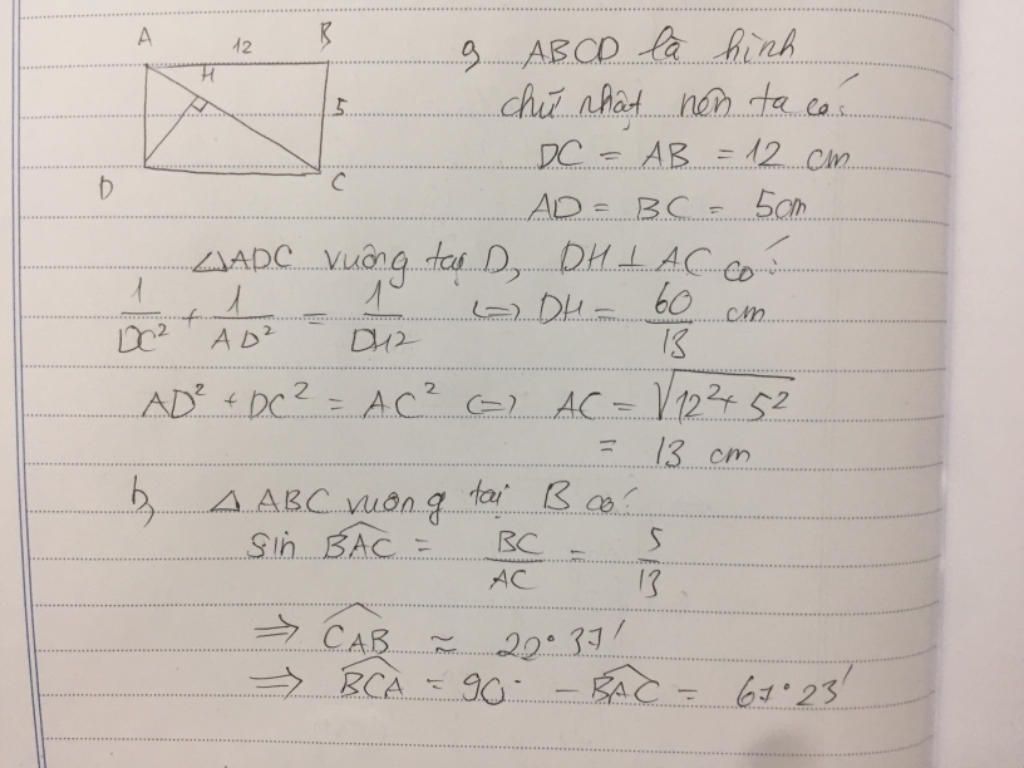 A 12 B
H
5
D C
a, ABCD là hình
chữ nhật nên ta có:
DC = AB = 12 cm
AD = BC = 5cm
△ADC vuông tại D, DH ⊥ AC có:
1/DC² + 1/AD² = 1/DH² <=> DH = 60/13 cm
AD² + DC² = AC² <=> AC = √(12² + 5²)
= 13 cm
b, △ABC vuong tại B có:
sin BAC = BC/AC = 5/13
=> CAB ≈ 22°37'
=> BCA = 90° - BAC = 67°23'